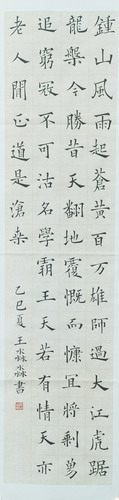 鍾山風雨起蒼黄百万雄師過大江虎踞
龍槃今勝昔天翻地覆慨而慷冝将剩勇
追窮寇不可沽名學霸王天若有情天亦
老人間正道是滄桒
乙巳夏王淼淼書